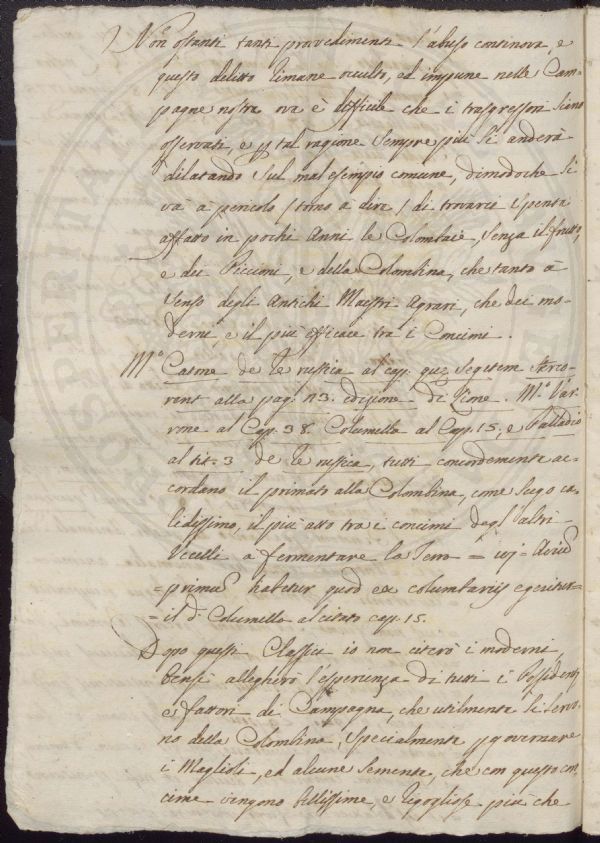 Non ostanti tanti provvedimenti l'abuso continova, e
questo delitto rimane occulto, ed impune nelle Cam-
pagne nostre ove è difficile che i trasgressori siano
osservati, e p tal ragione sempre più si anderà
dilatando sul mal esempio comune, dimodoche si
và a pericolo (torno à dire) di trovarsi spente
affatto in pochi Anni le Colombaie, senza il frutto,
e dei Piccioni, e della Colombina, che tanto à
senso degli Antichi Maestri Agrari, che dei mo-
derni, e il più efficace tra i Concimi.
M.º Catone de re rustica al cap. quæ segetem sterco-
rent alla pag. 113. edizione di Lione. M.º Var-
rone al Cap. 38. Columella al Cap. 15. e Palladio
al tit. 3 de re rustica, tutti concordemente ac-
cordano il primato alla Colombina, come sugo ca-
lidissimo, il più atto tra i concimi degl'altri
Uccelli a fermentare la Terra =
= primum habetur quod ex columbariis egeritur =
= il d.º Columella al citato cap. 15.
Dopo questi Classici io non citerò i moderni
bensì allegherò l'esperienza di tutti i Possidenti
e fattori di Campagna, che utilmente si servo-
no della Colombina, specialmente p governare
i Maglioli, ed alcune sementa, che con questo con-
cime vengono bellissime, e rigogliose più che